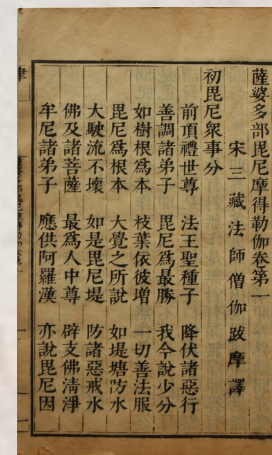 薩婆多部毘尼摩得勒伽卷第一
宋三藏法師僧伽跋摩譯
初毘尼衆事分
前頂禮世尊　法王聖種子　降伏諸惡行
善調諸弟子　毘尼爲最勝　我今說少分
如樹根爲本　枝葉依彼增　一切善法服
毘尼爲根本　大覺之所說　如堤塘防水
大駛流不壞　如是毘尼堤　防諸惡戒水
佛及諸菩薩　最爲人中尊　辟支佛清淨
牟尼諸弟子　應供阿羅漢　亦說毘尼因
律